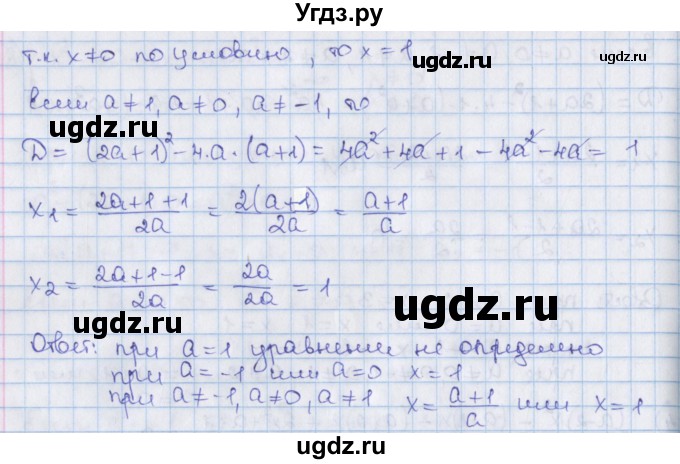 Угдз.ру
т.к. x≠0 по условию, то x = 1
угдз.ru
Если a≠1, a≠0, a≠-1, то
угдз.ru
D = (2a+1)² - 4·a·(a+1) = 4a² + 4a + 1 - 4a² - 4a = 1
x₁ = (2a+1+1)/2a = 2(a+1)/2a = (a+1)/a
x₂ = (2a+1-1)/2a = 2a/2a = 1
угдз.ru
угдз.ru
Ответ: при a = 1 уравнение не определено
при a = -1 или a = 0 x = 1
при a≠-1, a≠0, a≠1 x = (a+1)/a или x = 1
угдз.ru
угдз.ru